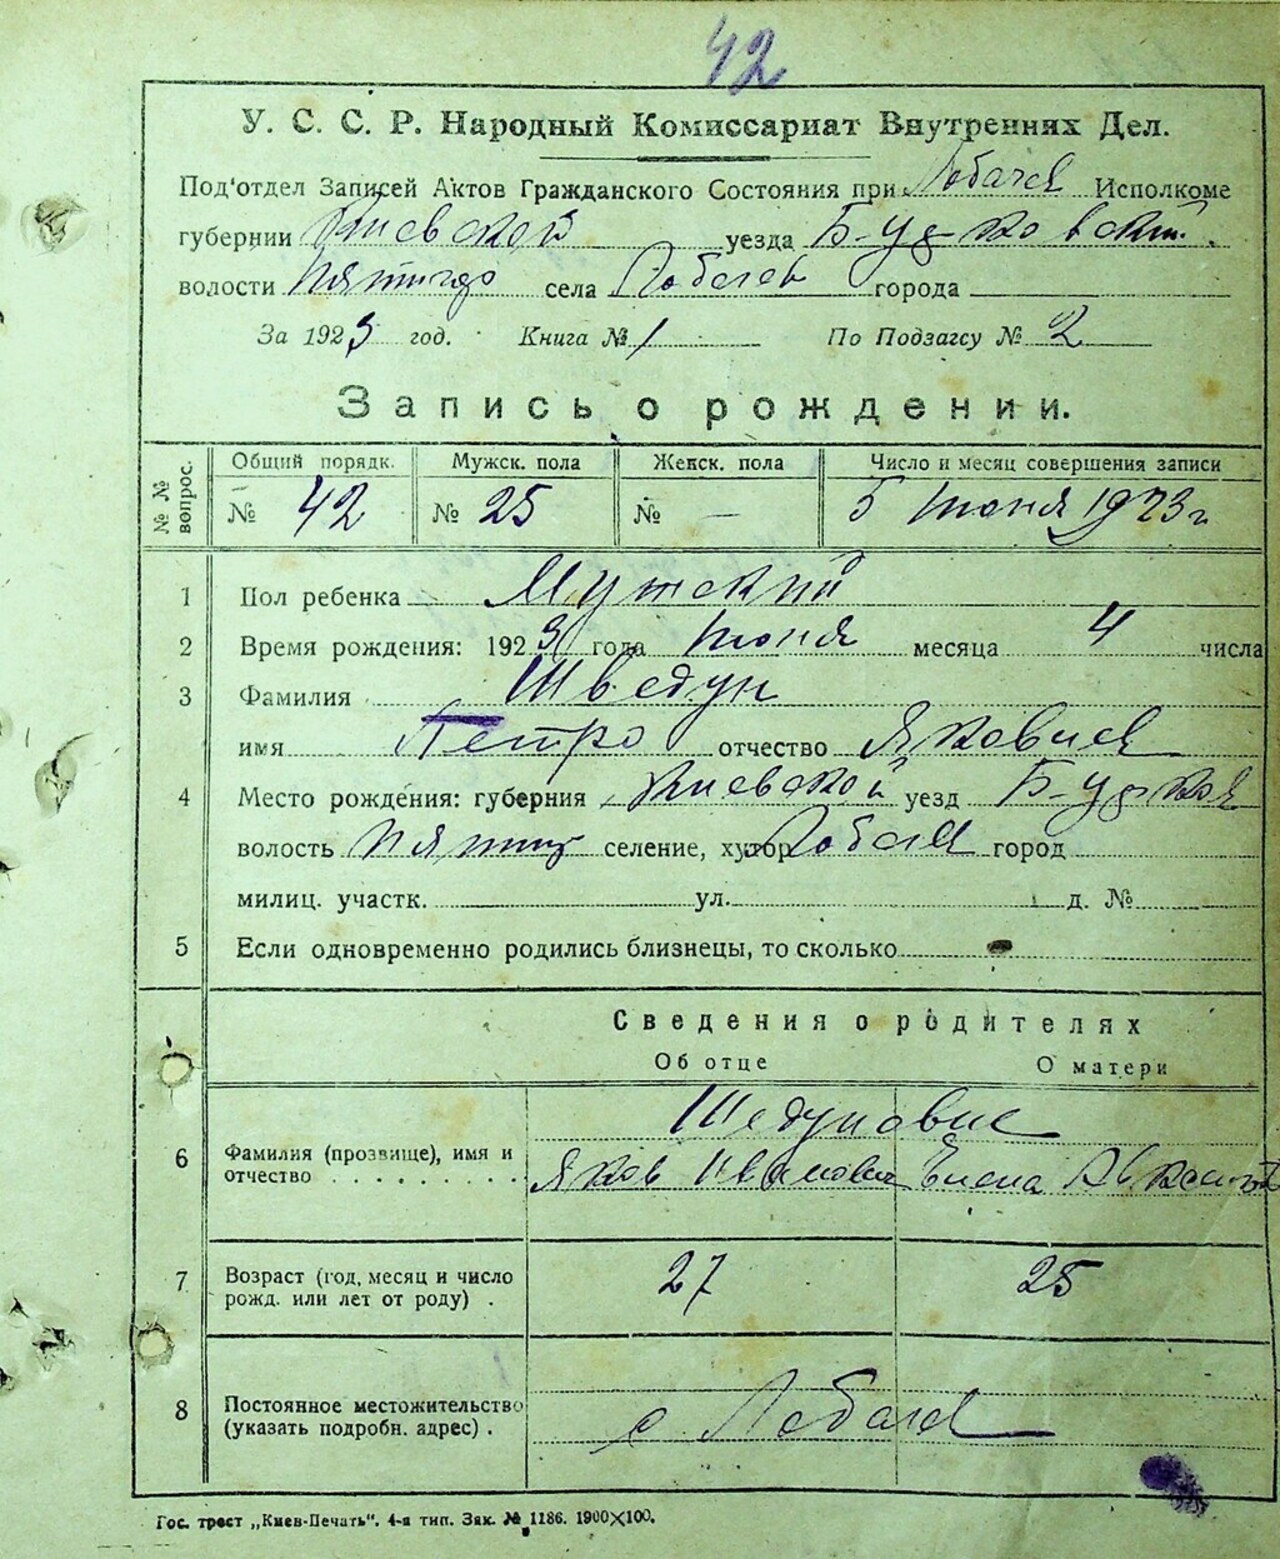 42
У. С. С. Р. Народный Комиссариат Внутренних Дел.
Под'отдел Записей Актов Гражданского Состояния при Лобачев Исполкоме
губернии Киевской уезда Б-Церковский
волости Пятигор села Лобачев города
За 1923 год. Книга № 1 По Подзагсу № 2
Запись о рождении.
№ № вопрос.
Общий порядк. Мужск. пола Женск. пола Число и месяц совершения записи
№ 42 № 25 № — 5 Июня 1923 г
1 Пол ребенка Мужский
2 Время рождения: 1923 года Июня месяца 4 числа
3 Фамилия Шведун
имя Петро отчество Яковлев
4 Место рождения: губерния Киевской уезд
волость Пятиг селение, хутор Лобачев город
милиц. участк. ул. д. №
5 Если одновременно родились близнецы, то сколько
Сведения о родителях
Об отце О матери
6 Фамилия (прозвище), имя и отчество
Яков Иванович Елена
7 Возраст (год, месяц и число рожд. или лет от роду) . 27 25
8 Постоянное местожительство (указать подробн. адрес) . с Лобачев
Гос. трест „Киев-Печать“. 4-я тип. Зак. № 1186. 1900×100.